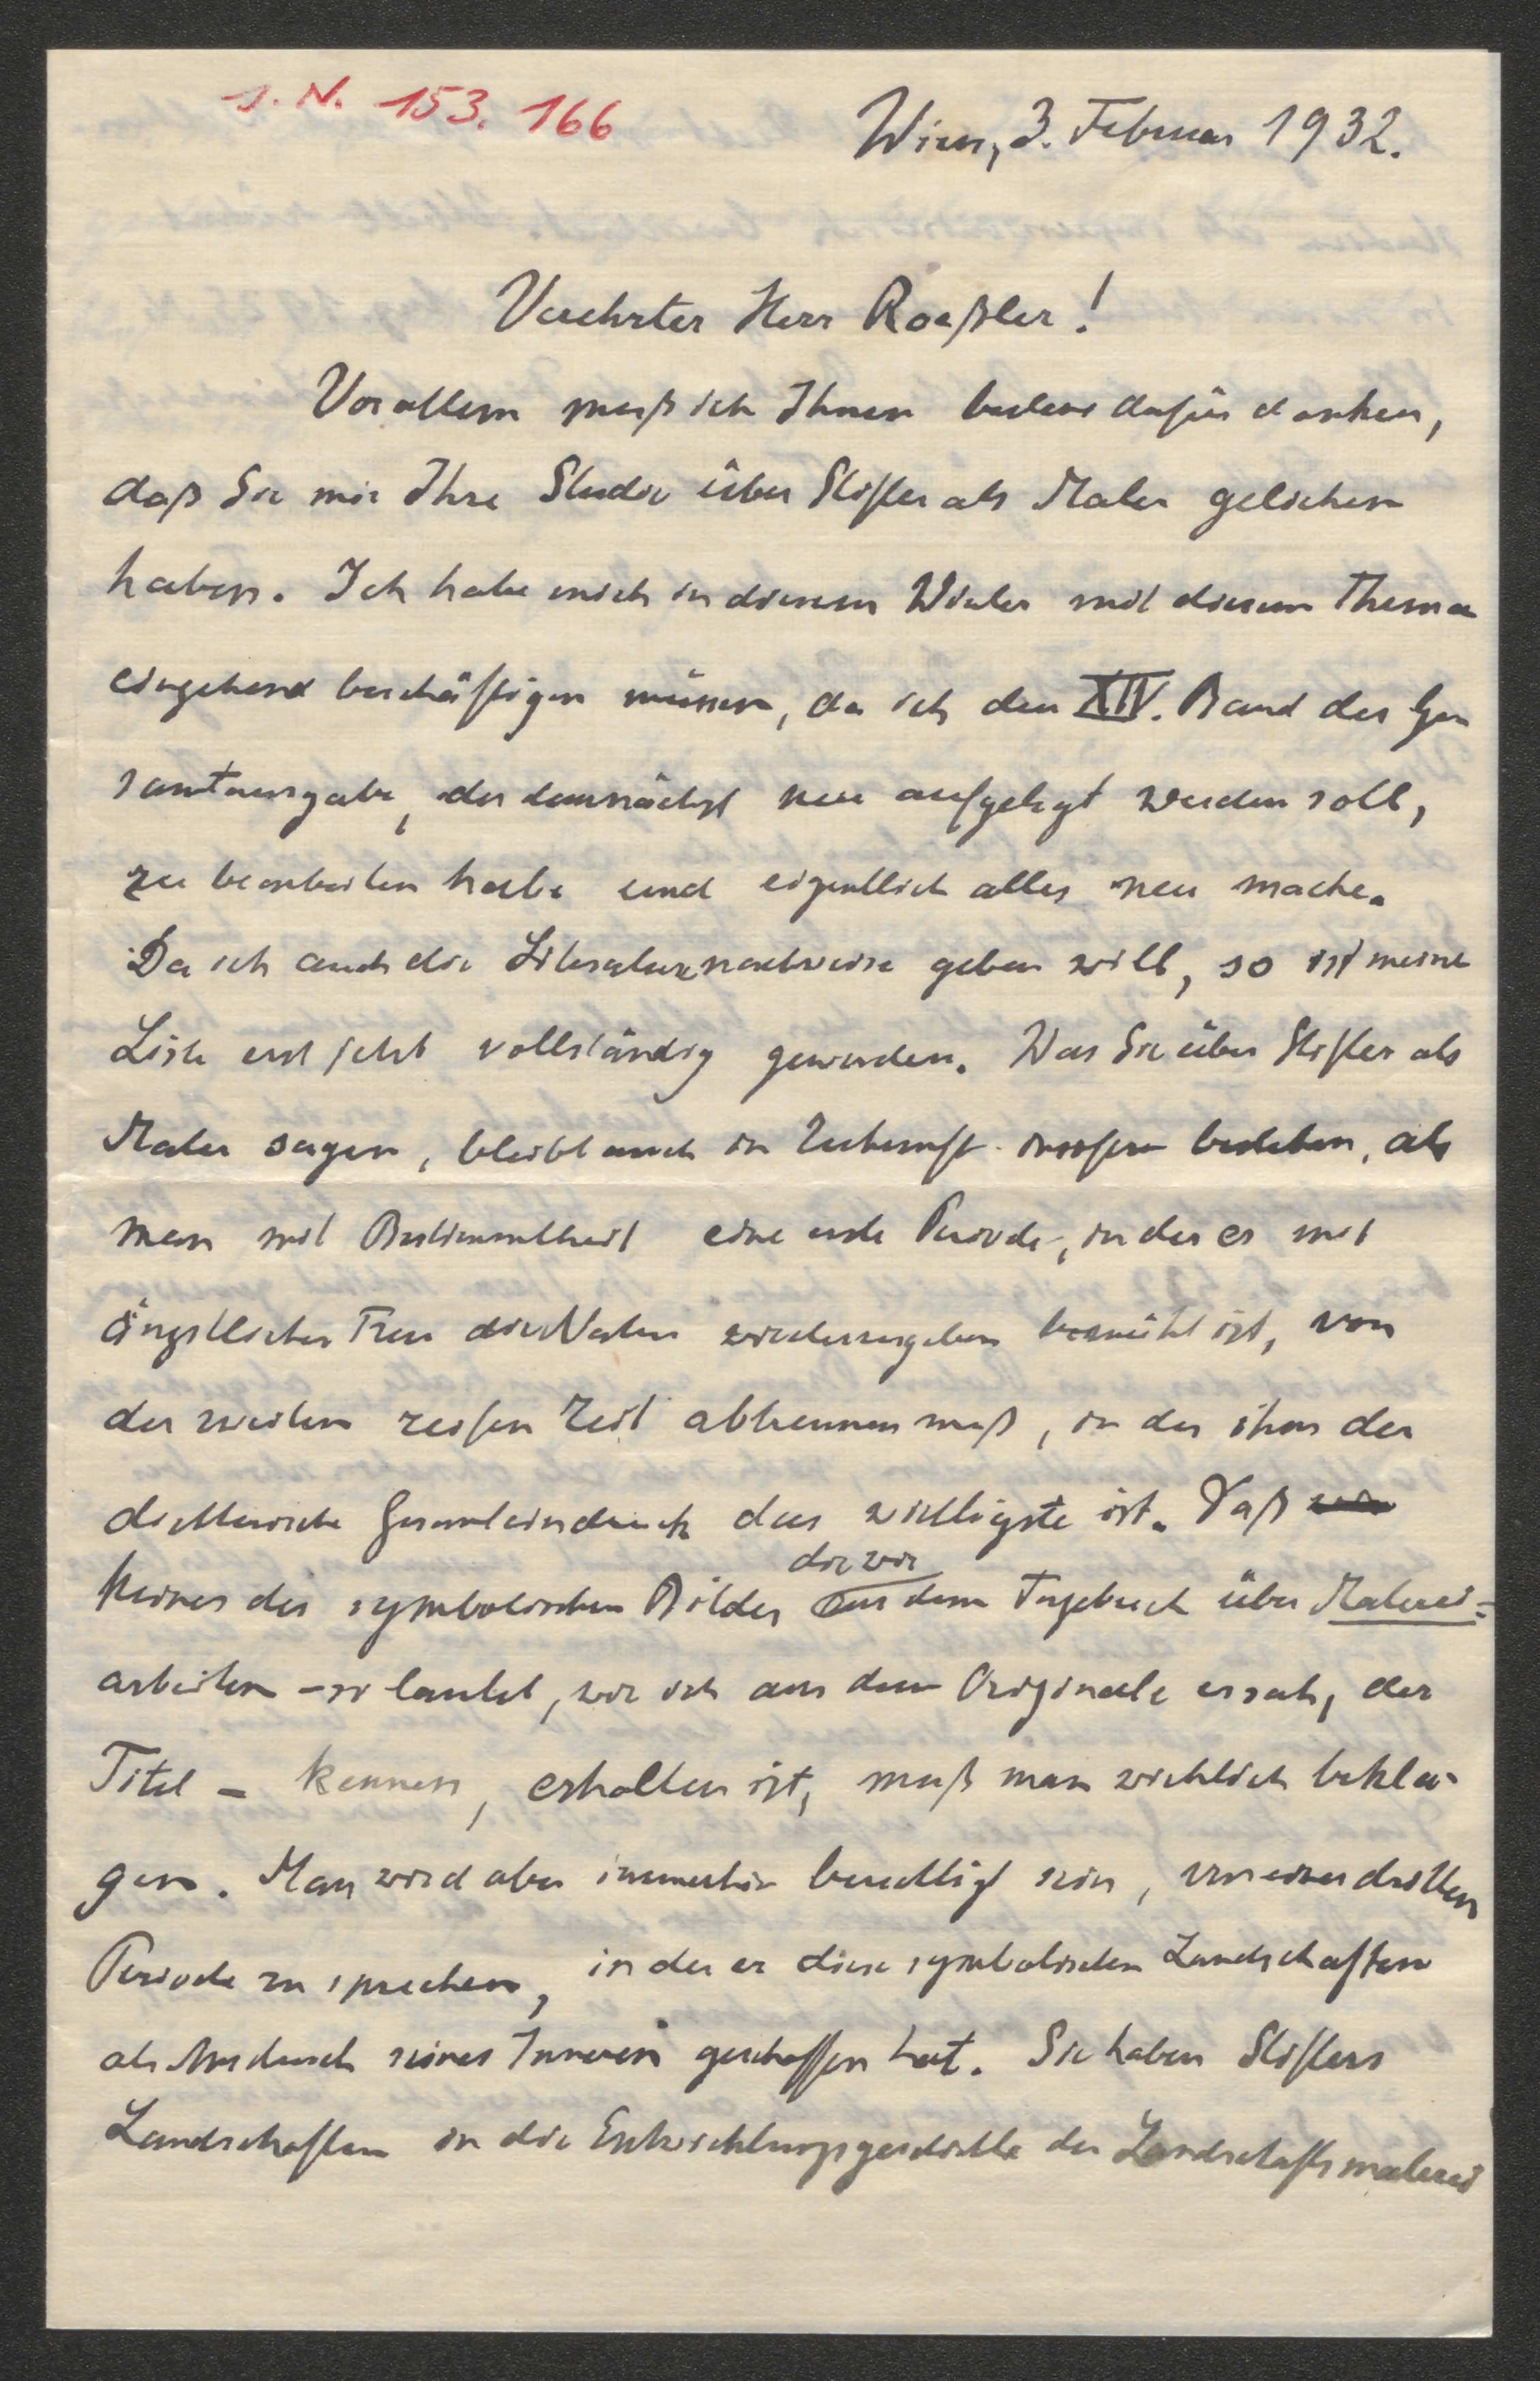 J. N. 153.166
Wien, 3. Februar 1932.
Verehrter Herr Roeßler!
Vor allem muß ich Ihnen bestens dafür danken,
daß Sie mir Ihre Studie über Stifter als Maler geliehen
haben. Ich habe mich in diesem Winter mit diesem Thema
eingehend beschäftigen müssen, da ich den XIV. Band der Ge
samtausgabe, der demnächst neu aufgelegt werden soll,
zu bearbeiten habe und eigentlich alles neu mache.
Da ich auch die Literaturnachweise geben will, so ist meine
Liste erst jetzt vollständig geworden. Was Sie über Stifter als
Maler sagen, bleibt auch in Zukunft insofern bestehen, als
man mit Bestimmtheit eine erste Periode, in der er mit
ängstlicher Treue die Natur wiederzugeben bemüht ist, von
der zweiten reifen Zeit abtrennen muß, in der ihm der
dichterische Gesamteindruck das wichtigste ist. Daß
keines der symbolischen Bilder die wir aus dem Tagebuch über Malerei=
arbeiten – so lautet, wie ich aus dem Originale ersah, der
Titel – kennen, erhalten ist, muß man wirklich bekla-
gen. Man wird aber immerhin berechtigt sein, von einer dritten
Periode zu sprechen, in der er diese symbolischen Landschaften
als Ausdruck seines Inneren geschaffen hat. Sie haben Stifters
Landschaften in die Entwicklungsgeschichte der Landschaftsmalerei